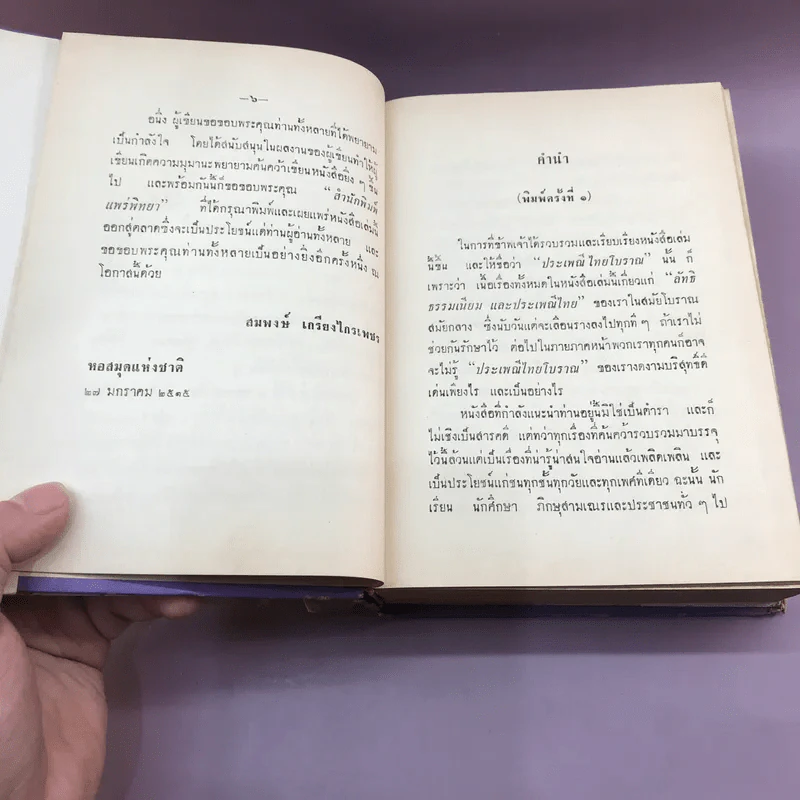 —๖—
อนึ่ง ผู้เขียนขอขอบพระคุณท่านทั้งหลายที่ได้พยายาม
เป็นกำลังใจ โดยได้สนับสนุนในผลงานของผู้เขียนทำให้ผู้
เขียนเกิดความมุมานะพยายามค้นคว้าเขียนหนังสือยิ่ง ๆ ขึ้น
ไป และพร้อมกันนี้ก็ขอขอบพระคุณ “สำนักพิมพ์
แพร่พิทยา” ที่ได้กรุณาพิมพ์และเผยแพร่หนังสือเล่มนี้
ออกสู่ตลาดซึ่งจะเป็นประโยชน์แด่ท่านผู้อ่านทั้งหลาย และ
ขอขอบพระคุณท่านทั้งหลายเป็นอย่างยิ่งอีกครั้งหนึ่ง ณ
โอกาสนี้ด้วย
สมพงษ์ เกรียงไกรเพชร
หอสมุดแห่งชาติ
๒๗ มกราคม ๒๕๑๕
คำนำ
(พิมพ์ครั้งที่ ๑)
ในการที่ข้าพเจ้าได้รวบรวมและเรียบเรียงหนังสือเล่ม
นี้ขึ้น และให้ชื่อว่า “ประเพณีไทยโบราณ” นั้น ก็
เพราะว่า เนื้อเรื่องทั้งหมดในหนังสือเล่มนี้เกี่ยวแก่ “ลัทธิ
ธรรมเนียม และประเพณีไทย” ของเราในสมัยโบราณ
สมัยกลาง ซึ่งนับวันแต่จะเลือนรางลงไปทุกที ๆ ถ้าเราไม่
ช่วยกันรักษาไว้ ต่อไปในภายภาคหน้าพวกเราทุกคนก็อาจ
จะไม่รู้ “ประเพณีไทยโบราณ” ของเรางดงามบริสุทธิ์ดี
เด่นเพียงไร และเป็นอย่างไร
หนังสือที่กำลังแนะนำท่านอยู่นี้มิใช่เป็นตำรา และก็
ไม่เชิงเป็นสารคดี แต่ทว่าทุกเรื่องที่ค้นคว้ารวบรวมมาบรรจุ
ไว้นี้ล้วนแต่เป็นเรื่องที่น่ารู้น่าสนใจอ่านแล้วเพลิดเพลิน และ
เป็นประโยชน์แก่ชนทุกชั้นทุกวัยและทุกเพศทีเดียว ฉะนั้น นัก
เรียน นักศึกษา ภิกษุสามเณรและประชาชนทั่ว ๆ ไป